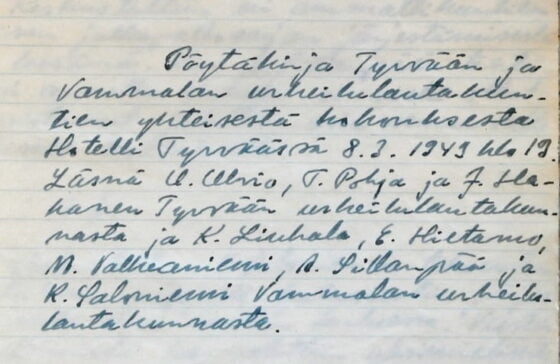 Pöytäkirja Tyrvään ja
Vammalan urheilulautakun-
tien yhteisestä kokouksesta
Hotelli Tyrväässä 8.3.1949 klo 19.
Läsnä U. Ulvio, T. Pohja ja J. Ha-
kanen Tyrvään urheilulautakun
nasta ja K. Liuhala, E. Hietamo,
M. Valkeaniemi, A. Sillanpää ja
K. Saloniemi Vammalan urheilu-
lautakunnasta.